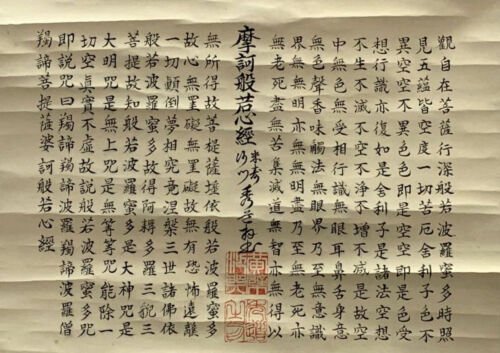 觀自在菩薩行深般若波羅蜜多時照
見五蘊皆空度一切苦厄舍利子色不
異空空不異色色即是空空即是色受
想行識亦復如是舍利子是諸法空想
不生不滅不空不淨不增不減是故空
中無色無受相行識無眼耳鼻舌身意
無色聲香味觸法無眼界乃至無意識
界無無明亦無無明盡乃至無老死亦
無老死盡無苦集滅道無智亦無得以
摩訶般若心經
無所得故菩提薩埵依般若波羅蜜多
故心無罣礙無罣礙故無有恐怖遠離
一切顛倒夢相究竟涅槃三世諸佛依
般若波羅蜜多故得阿耨多羅三藐三
菩提故知般若波羅蜜多是大神咒是
大明咒是無上咒是無等等咒能除一
切空真實不虛故說般若波羅蜜多咒
即説咒曰羯諦羯諦波羅羯諦波羅僧
羯諦菩提薩婆訶般若心經